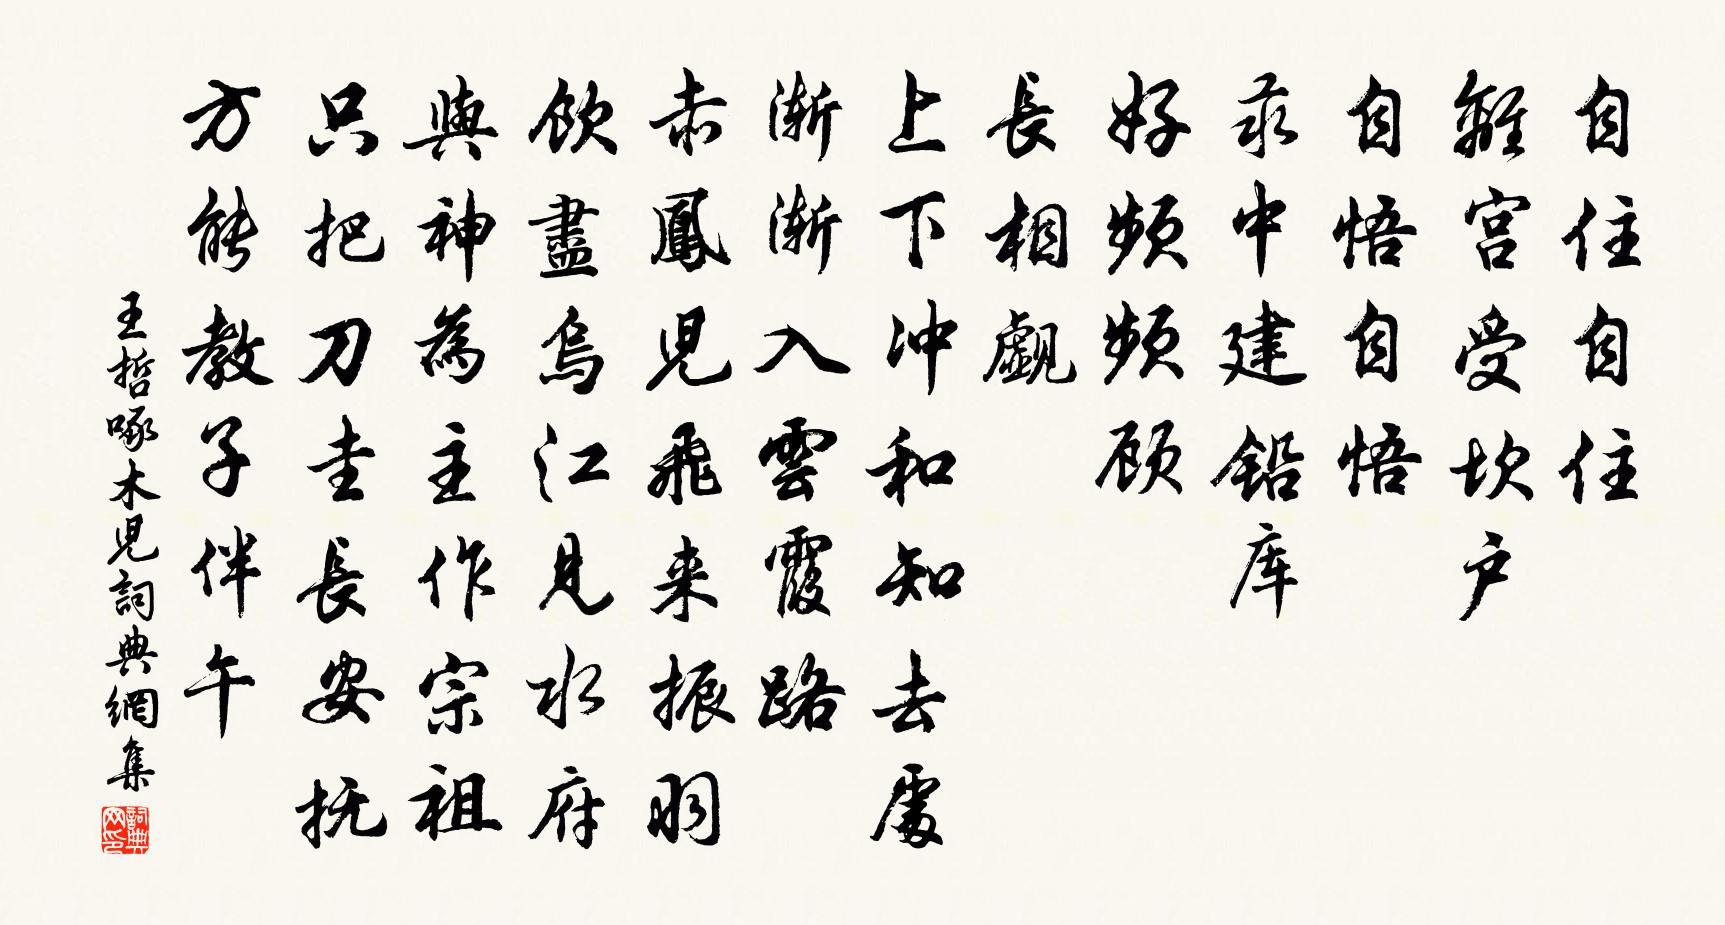 自住自住
離宮受坎户
自悟自悟
汞中建鉛库
好频频顾
長相觑
上下冲和知去處
渐渐入雲霞路
赤鳳児飛来振羽
飲盡烏江見水府
與神為主作宗祖
只把刀圭長安抚
方能教子伴午
王哲啄木児詞典網集
詞典網印